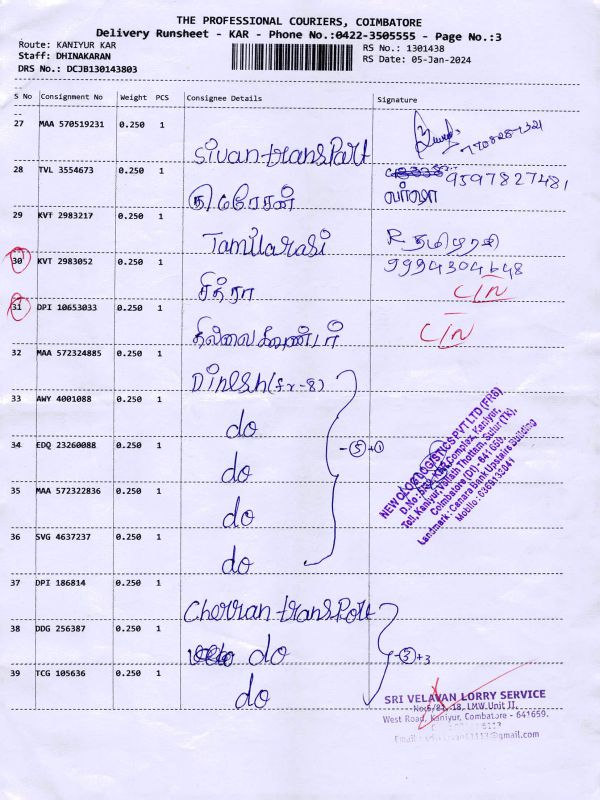 THE PROFESSIONAL COURIERS, COIMBATORE
Delivery Runsheet - KAR - Phone No.:0422-3505555 - Page No.:3
Route: KANIYUR KAR
RS No.: 1301438
Staff: DHINAKARAN
RS Date: 05-Jan-2024
DRS No.: DCJB130143803
S No Consignment No Weight PCS Consignee Details Signature
27 MAA 570519231 0.250 1 Sivan transPort
28 TVL 3554673 0.250 1 9597827481
வர்ஷா
29 KVT 2983217 0.250 1 Tamilarasi R தமிழரசி
9994304648
30 KVT 2983052 0.250 1 சித்ரா C/N
31 DPI 10653033 0.250 1 C/N
32 MAA 572324885 0.250 1 Dinesh (fr-8)
33 AWY 4001088 0.250 1 do
34 EDQ 23260088 0.250 1 do
- 5 + 1
35 MAA 572322836 0.250 1 do
36 SVG 4637237 0.250 1 do
37 DPI 186814 0.250 1 Cherran transPort
38 DDG 256387 0.250 1 do
- 3 + 3
39 TCG 105636 0.250 1 do
NEW OLOGLOGISTICS PVT LTD (FRS)
Complex, Kaniyur,
Toll, Kaniyur, Thottam, Sulur (Tk),
Coimbatore (Dt) - 641 659.
Landmark : Canara Bank Upstairs Building
SRI VELAVAN LORRY SERVICE
18, LMW Unit II,
West Road, Kaniyur, Combatore - 641659.